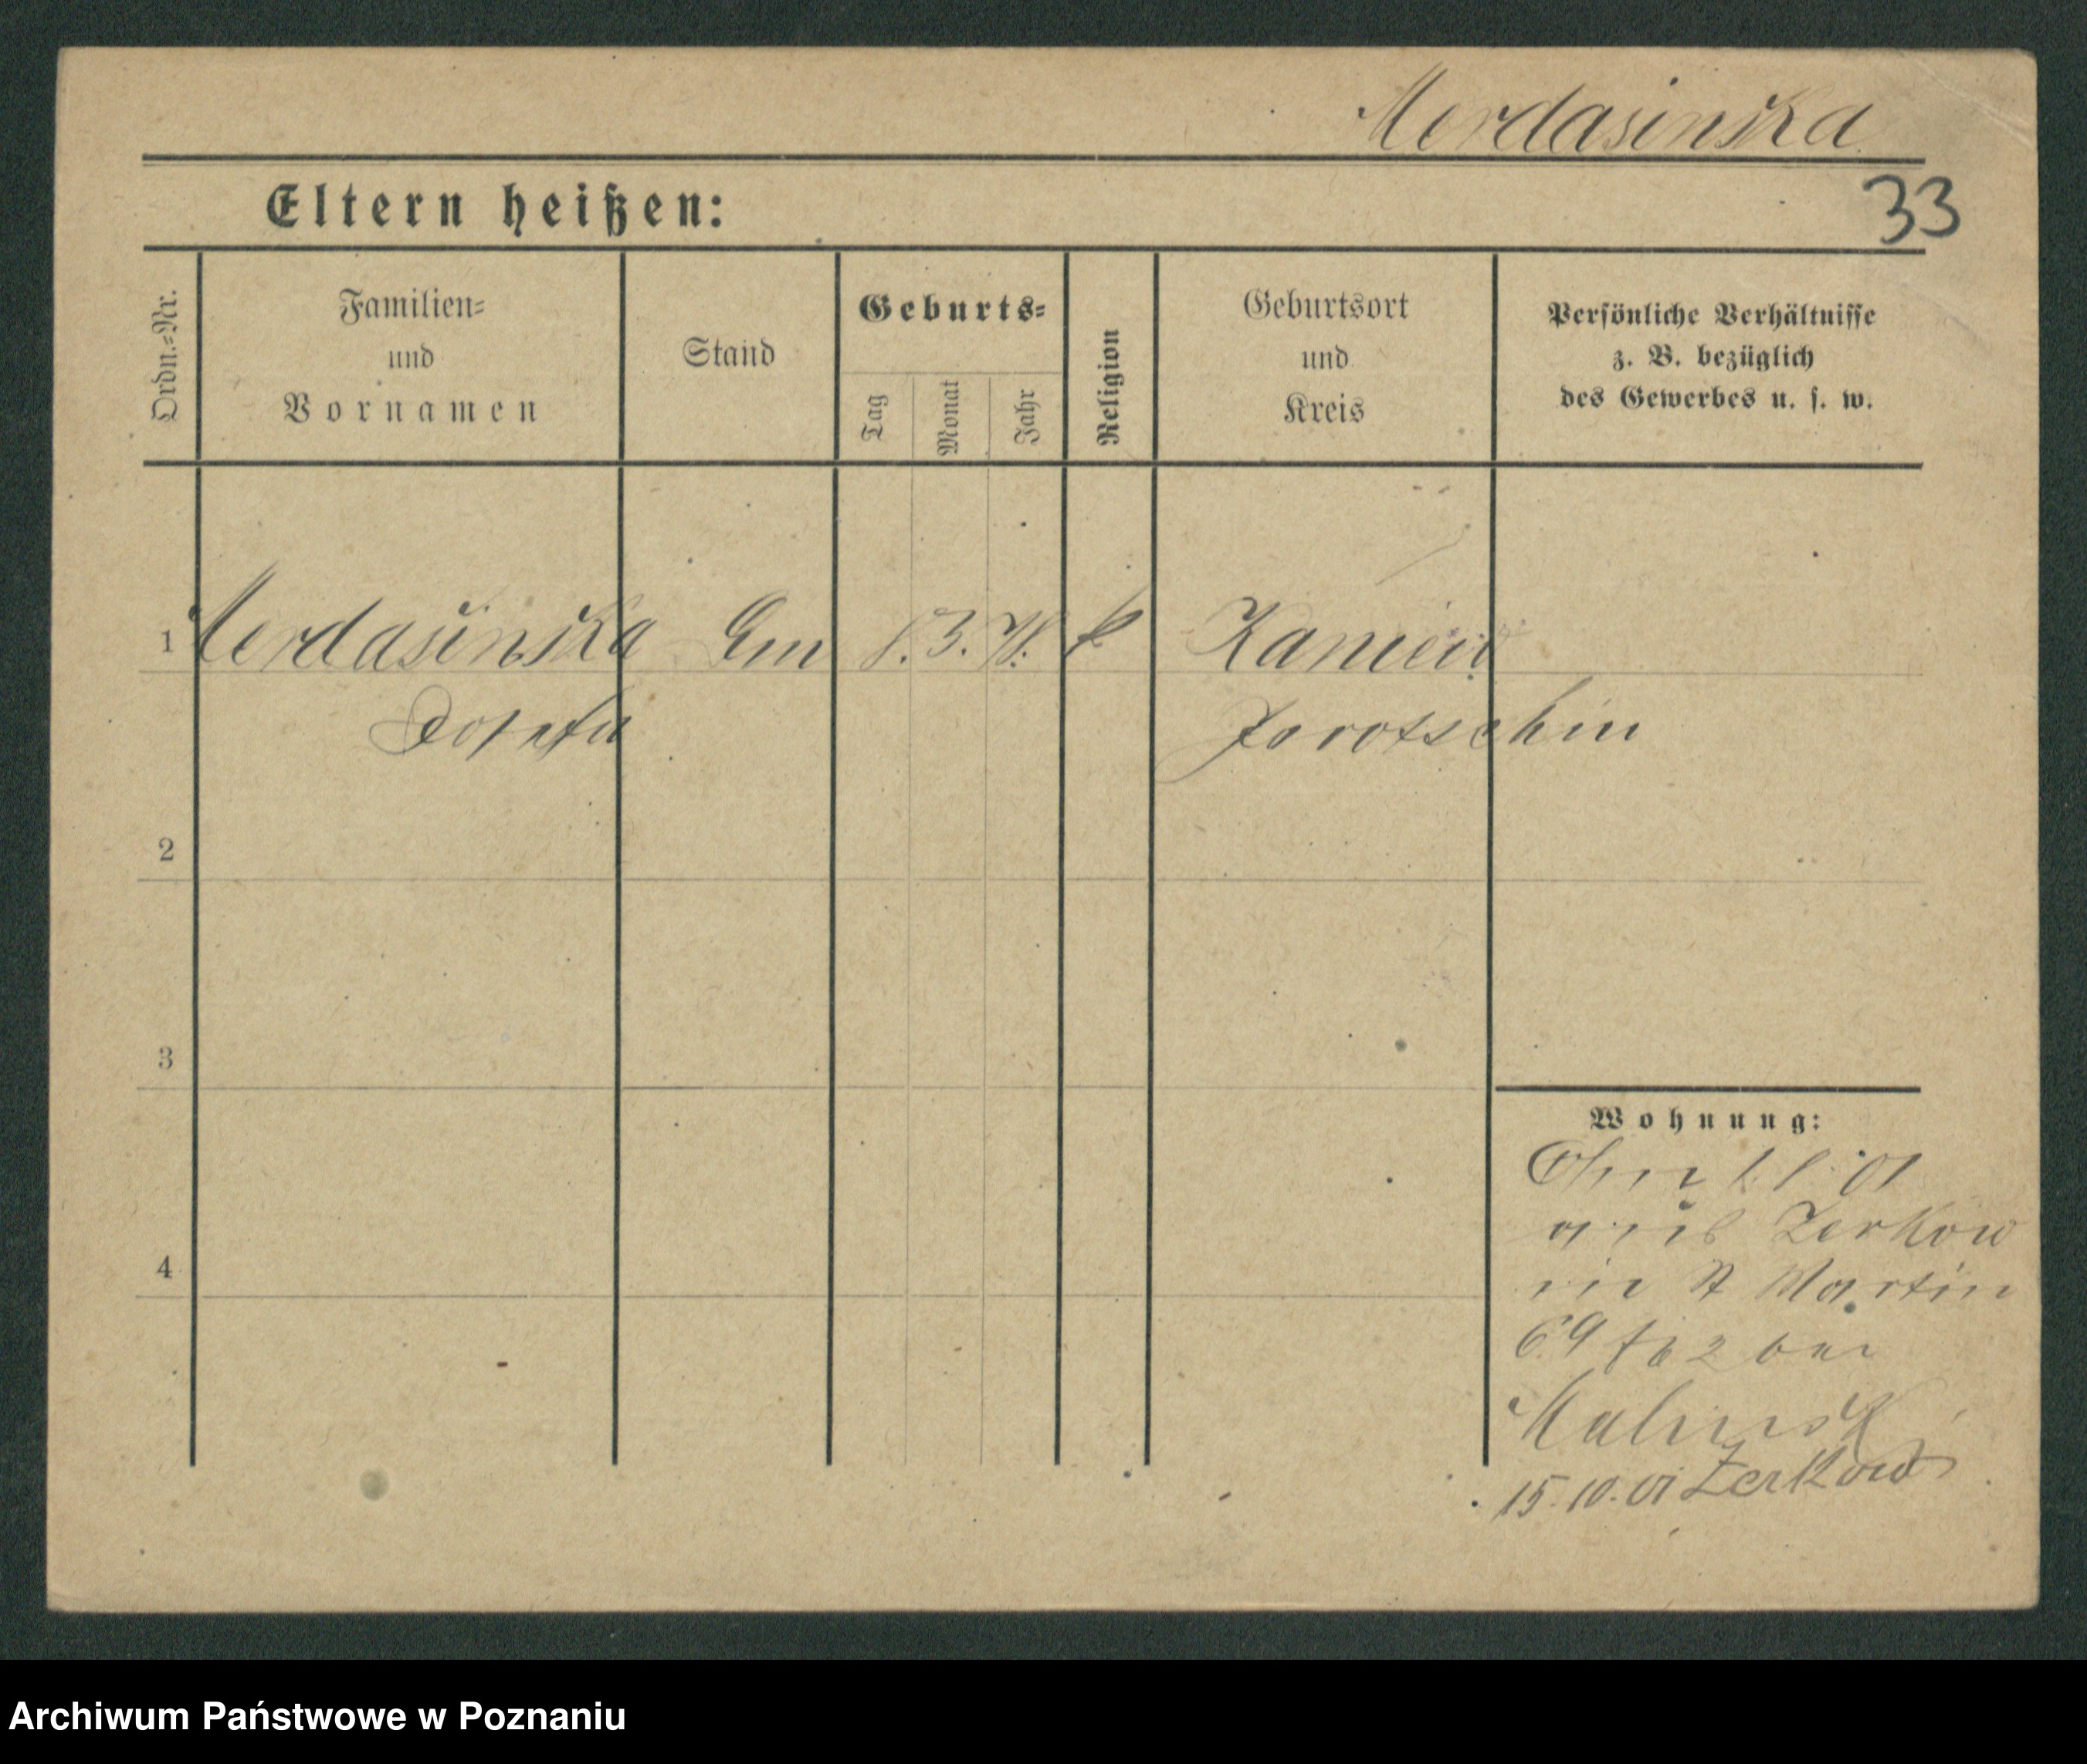 Merdasinska
Eltern heißen:
33
Ordn.=Nr.
Familien=
und
Vornamen
Stand
Geburts=
Tag
Monat
Jahr
Religion
Geburtsort
und
Kreis
Persönliche Verhältnisse
z. B. bezüglich
des Gewerbes u. s. w.
1 Merdasinska 3. k Kamień
Josefa Jarotschin
2
3
4
Wohnung:
01
aus Zerkow
in St Martin
69 bei
Malinsk
15.10.01 Zerkow
Archiwum Państwowe w Poznaniu